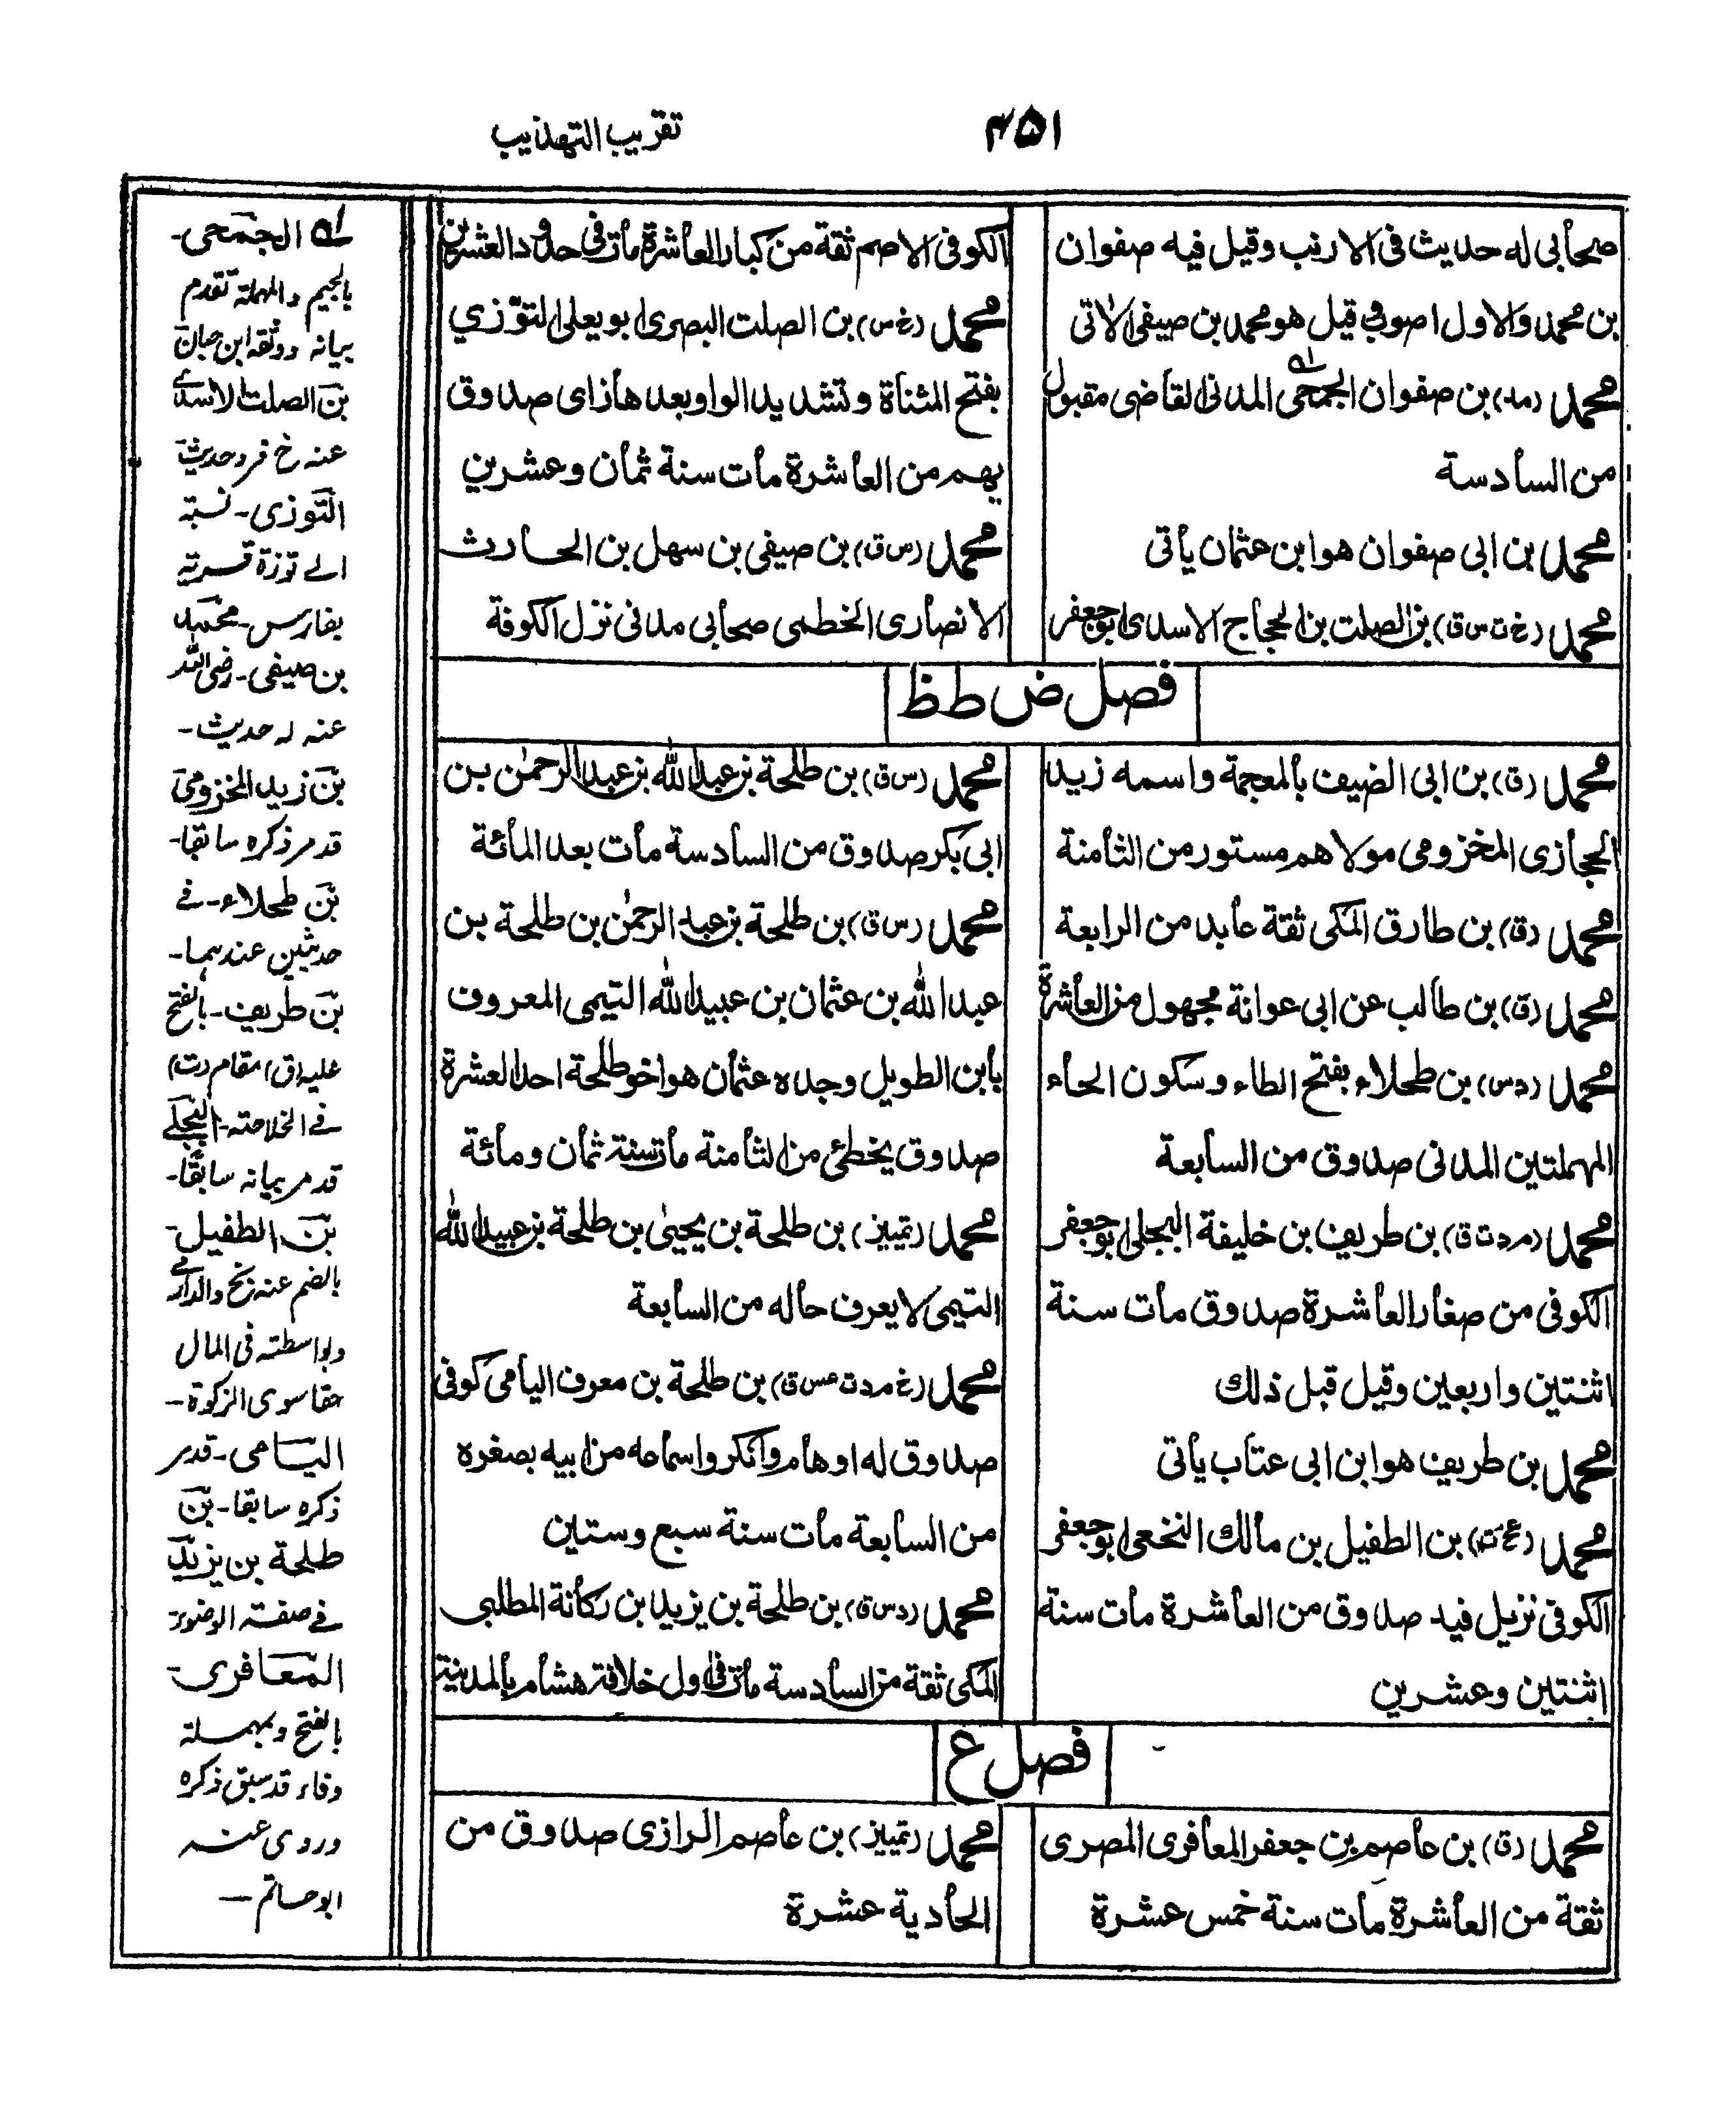 ۴۵۱
تقريب التهذيب
صحابى له حديث فى الارنب وقيل فيه صفوان
بن محمد والاول اصوب قيل هو محمد بن صيفى الآتى
محمد (مد) بن صفوان الجمحى المدنى القاضى مقبول
من السادسة
محمد بن ابى صفوان هو ابن عثمان يأتى
محمد (خ ت س ق) بن الصلت بن الحجاج الاسدى ابو جعفر
الكوفى الاصم ثقة من كبار العاشرة مات فى حدود العشرين
محمد (خ س) بن الصلت البصرى ابو يعلى التوّزي
بفتح المثناة وتشديد الواو بعدها زاى صدوق
يهم من العاشرة مات سنة ثمان وعشرين
محمد (س ق) بن صيفى بن سهل بن الحارث
الانصارى الخطمى صحابى مدنى نزل الكوفة
فصل ض ط ظ
محمد (ق) بن ابى الضيف بالمعجمة واسمه زيد
الحجازى المخزومى مولاهم مستور من الثامنة
محمد (ق) بن طارق المكى ثقة عابد من الرابعة
محمد (ق) بن طالب عن ابى عوانة مجهول من العاشرة
محمد (د س) بن طحلاء بفتح الطاء وسكون الحاء
المهملتين المدنى صدوق من السابعة
محمد (م د ت ق) بن طريف بن خليفة البجلى ابو جعفر
الكوفى من صغار العاشرة صدوق مات سنة
اثنتين واربعين وقيل قبل ذلك
محمد بن طريف هو ابن ابى عتاب يأتى
محمد (عخ ت) بن الطفيل بن مالك النخعى ابو جعفر
الكوفى نزيل فيد صدوق من العاشرة مات سنة
اثنتين وعشرين
محمد (س ق) بن طلحة بن عبد الله بن عبد الرحمٰن بن
ابى بكر صدوق من السادسة مات بعد المائة
محمد (س ق) بن طلحة بن عبد الرحمٰن بن طلحة بن
عبد الله بن عثمان بن عبيد الله التيمى المعروف
بابن الطويل وجده عثمان هو اخو طلحة احد العشرة
صدوق يخطئ من الثامنة مات سنة ثمان ومائة
محمد (تمييز) بن طلحة بن يحيىٰ بن طلحة بن عبيد الله
التيمى لا يعرف حاله من السابعة
محمد (خ م د ت عس ق) بن طلحة بن معرف اليامى كوفى
صدوق له اوهام وانكروا سماعه من ابيه بصغره
من السابعة مات سنة سبع وستين
محمد (د س ق) بن طلحة بن يزيد بن ركانة المطلبى
المكى ثقة من السادسة مات فى اول خلافة هشام بالمدينة
فصل ع
محمد (ق) بن عاصم بن جعفر المعافرى المصرى
ثقة من العاشرة مات سنة خمس عشرة
محمد (تمييز) بن عاصم الرازى صدوق من
الحادية عشرة
ا؎ الجمحى-
بالجيم والمهملة تقدم
بيانه ووثقه ابن حبان
بن الصلت الاسدے
عنه خ فرد حديث
التوزى- نسبة
الے توزة قرية
بفارس- محمد
بن صيفى- رضى الله
عنه له حديث-
بن زيد المخزومى
قد مر ذكره سابقا-
بن طحلاء- فے
حديثين عندهما-
بن طريف- بالفتح
عليه (ق) مقام (ت)
فے الخلاصة- البجلے
قد مر بيانه سابقًا-
بن الطفيل-
بالضم عنه بخ والدارمے
وبواسطته فى المال
حقا سوى الزكوة-
اليامى- قد مر
ذكره سابقا- بن
طلحة بن يزيد
فے صفة الوضوء
المعافرى-
بالفتح وبمهملة
وفاء قد سبق ذكره
وروى عنه
ابو حاتم-